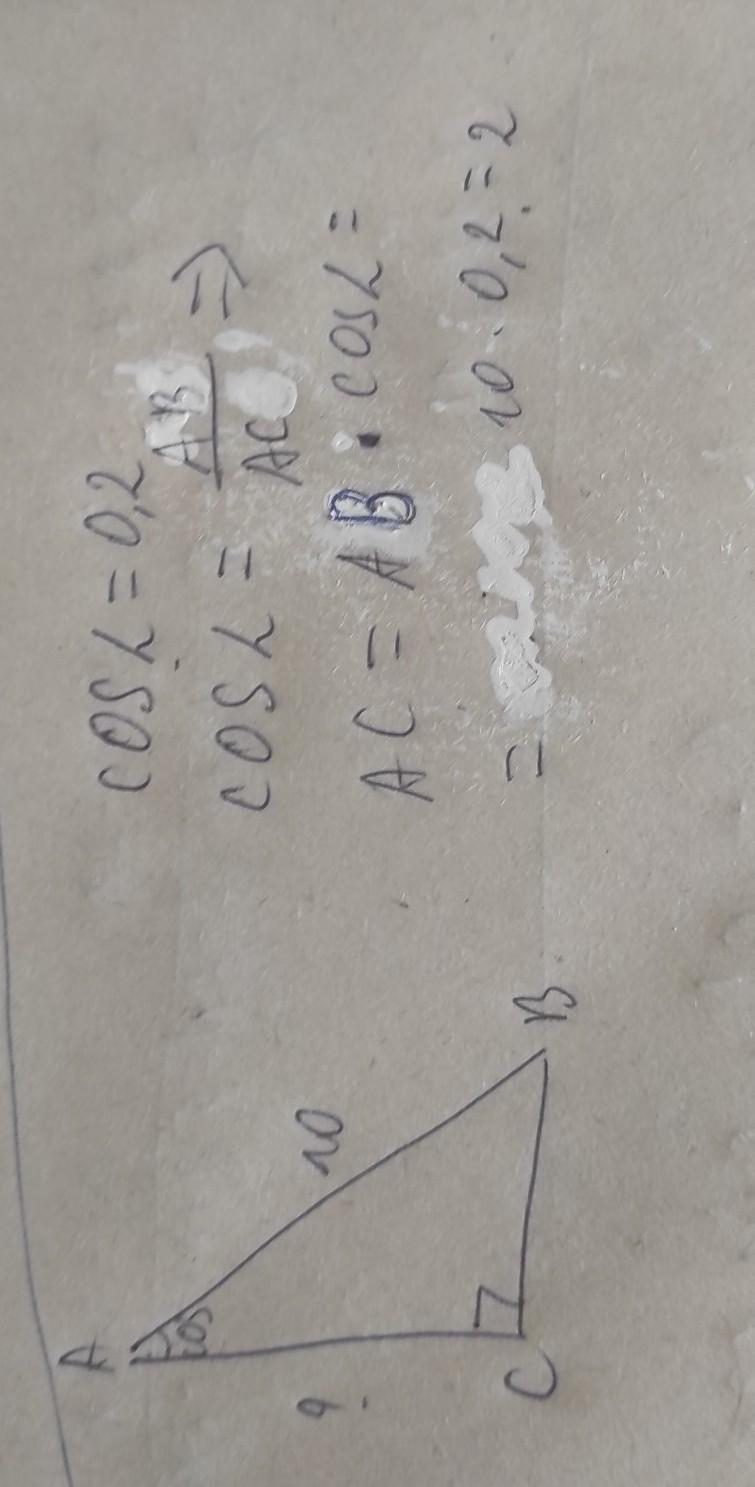 A
cos
10
?
C
B
cos α = 0,2
cos α = AB/AC ⇒
AC = AB · cos α =
= 10 · 0,2 = 2